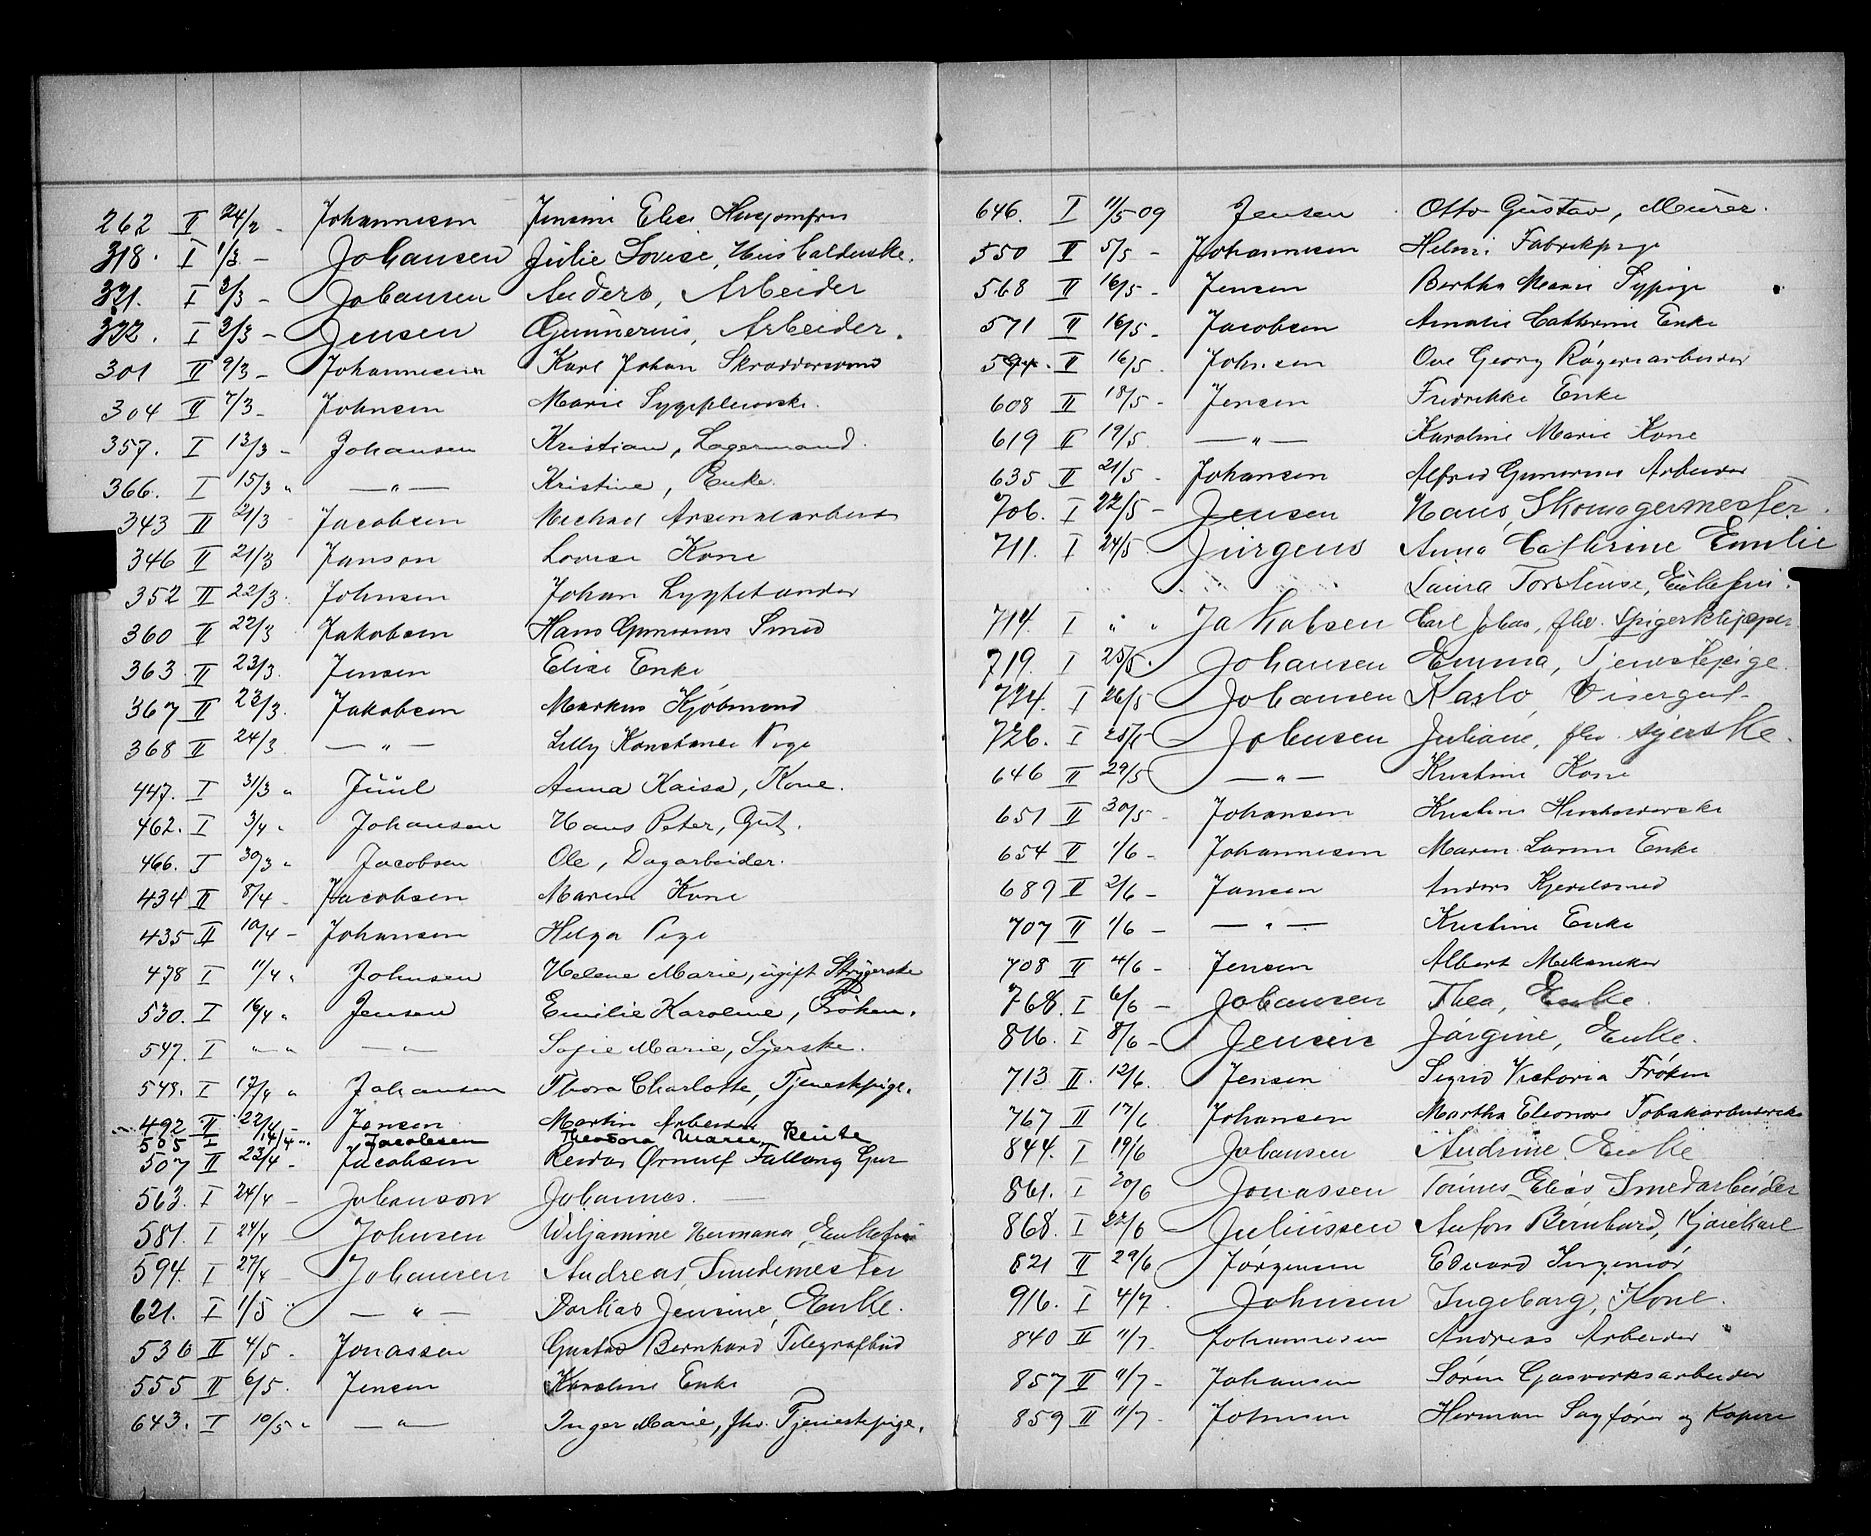 262 II 24/2 - Johannesen Jensine Elise Husjomfru
318. I 1/3 - Johansen Julie Lovise, Husholderske.
321. I 2/3 - Johansen Anders, Arbeider
322. I 3/3 - Jensen Gunnerius, Arbeider.
301 II 9/3 - Johannesen Karl Johan Skræddersvend
304 II 7/3 - Johnsen Marie Sygepleierske.
357. I 13/3 - Johansen Kristian, Lagermand.
366. I 15/3 " — " — Kristine, Enke.
343 II 21/3 - Jacobsen Michael Arsenalarbeider
346 II 21/3 Janson Lovise Kone
352 II 22/3. Johnsen Johan Lygtetænder
360 II 22/3. Jakobsen Hans Gunerius Smed
363 II 23/3. Jensen Elise Enke
367 II 23/3. Jakobsen Markus Kjøbmand
368 II 24/3 — " — Lilly Konstance Pige
447. I 31/3 " Júúl Anna Kaisa, Kone.
462. I 3/4 " Johansen Hans Peter, Gut.
466. I 30/3 " Jacobsen Ole, Dagarbeider.
434 II 8/4 - Jacobsen Maren Kone
435 II 10/4 - Johansen Helga Pige
478 I 11/4 " Johnsen Helene Marie, ugift Strygerske
530. I 16/4 " Jensen Emilie Karoline, Frøken.
547. I " " — " — Sofie Marie, Syerske.
548. I 17/4 " Johansen Thora Charlotte, Tjenestepige.
492 II 22/4 - Jensen Martin Arbeider
505 I 14/4 " Jacobsen Theodora Marie, Enke
507 II 23/4 - Jacobsen Reidar Ørnulf Fallang Gut
563. I 24/4 - Johanson Johannes. —
581. I 24/4 - Johnsen Wiljamine Hermana, Enkefru
594. I 27/4 - Johansen Andreas, Smedemester
621. I 1/5 " — " — Dorkas Jensine, Enke.
536 II 4/5 - Jonassen Gustav Bernhard Telegrafbud
555 II 6/5. Jensen Karoline Enke
643. I 10/5 " — " — Inger Marie, fhv. Tjenestepige.
646. I 11/5 09 Jensen Otto Gustav, Murer.
550 II 5/5 - Johannesen Helmi Fabrikpige
568 II 16/5 - Jensen Bertha Marie Sypige
571 II 16/5 - Jacobsen Amalie Cathrine Enke
594. II 16/5. Johnsen Ove Georg Rørgersarbeider
608 II 18/5 - Jensen Fredrikke Enke
619 II 19/5. — " — Karoline Marie Kone
635 II 21/5 - Johansen Alfred Gunerius Arbeider
706. I 22/5 - Jensen Hans, Skomagermester.
711. I 24/5 Jürgens Anna Cathrine Emilie
Laura Torstense, Enkefru.
714. I " " Jakobsen Carl Johan, fhv. Spigerklipper
719. I 25/5. Johansen Emma, Tjenestepige.
724. I 26/5 Johansen Karlo, Visergut
726. I 25/5 Johnsen Juliane, fhv. syerske.
646 II 29/5 — " — Kristine Kone
651 II 30/5 - Johansen Kristine Husholderske
654 II 1/6 - Johannesen Maren Enke
689 II 2/6 - Jansen Anders Kjedelsmed
707 II 1/6 - — " — Kristine Enke
708 II 4/6 - Jensen Albert Mekaniker
768. I 6/6 - Johansen Thea, Enke.
816. I 8/6 - Jensen Jørgine, Enke.
713 II. 12/6. Jensen Sigrid Victoria Frøken
767 II 17/6 Johansen Martha Eleonore Tobakarbeiderske
844. I 19/6 Johansen Andrine Enke
861. I 20/6 Jonassen Tønnes Elias Smedarbeider
868. I 22/6 Juliussen Anton Bernhard,
821 II 29/6 Jørgensen Edvard Ingeniør
916. I 4/7. Johnsen Ingeborg, Kone.
840 II 11/7. Johannesen Andreas Arbeider
857 II 11/7 - Johansen Søren Gasverksarbeider
859 II 11/7 - Johnsen Herman Sagfører og